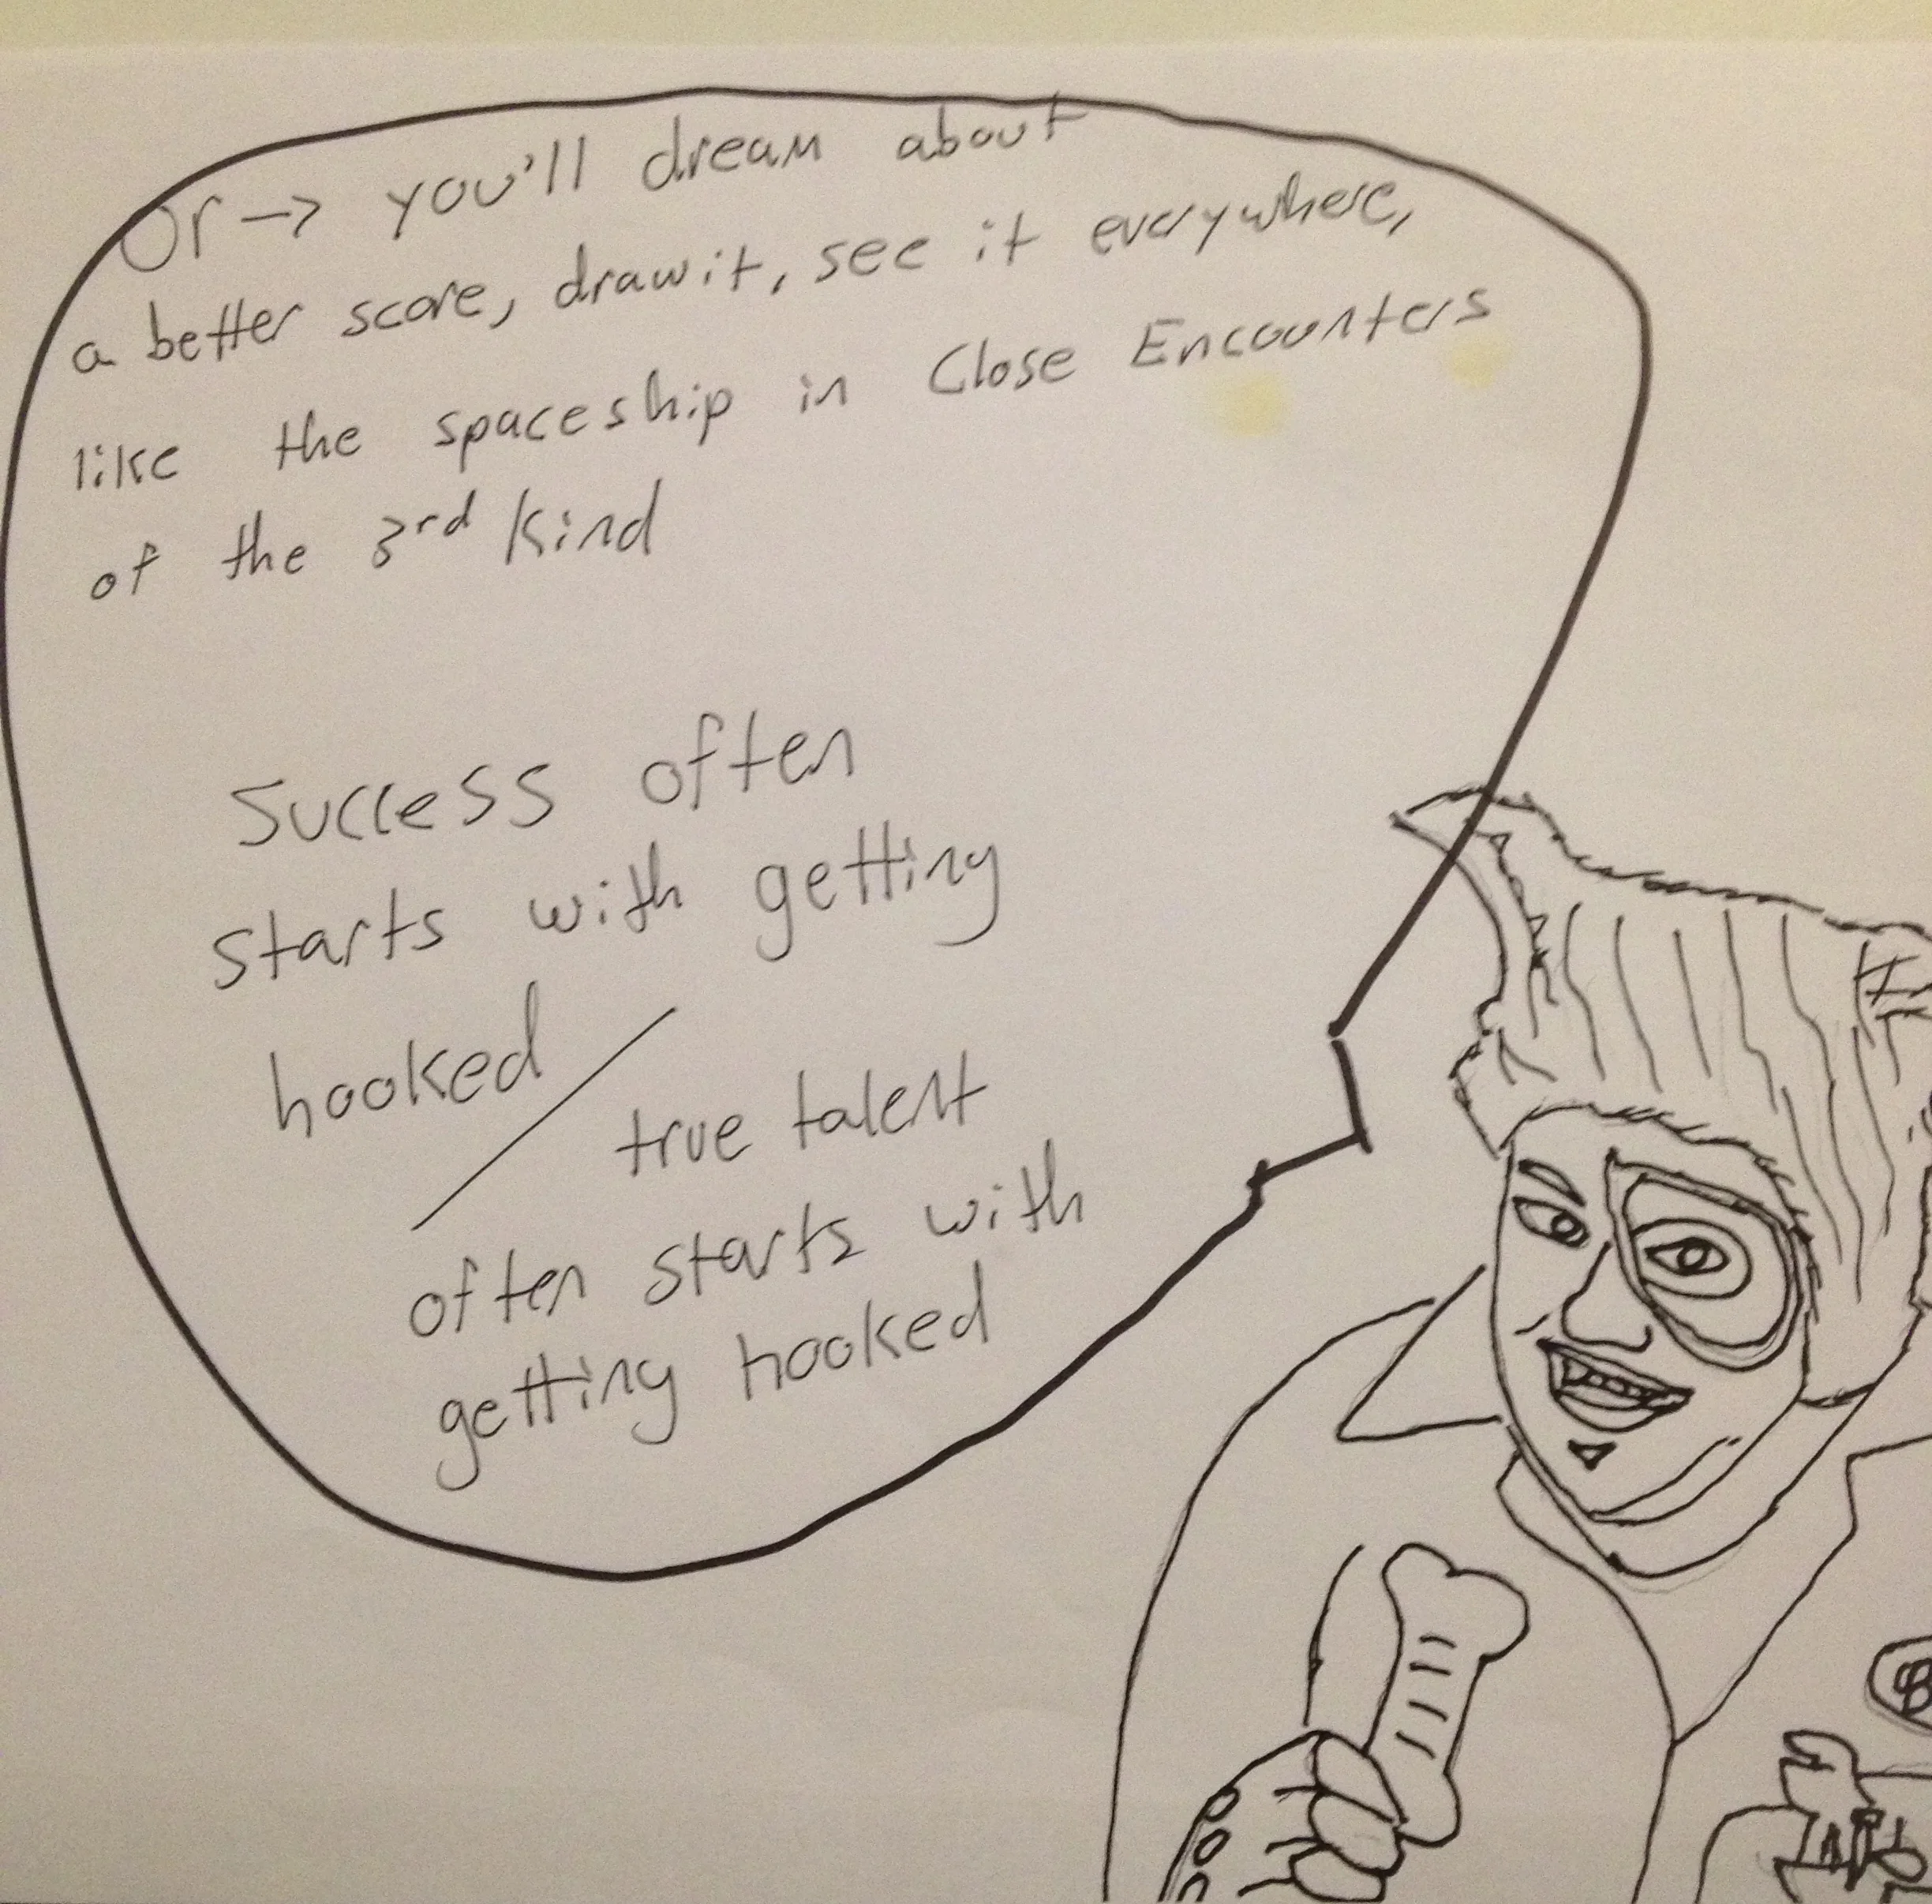 Or → you'll dream about
a better score, draw it, see it everywhere,
like the spaceship in Close Encounters
of the 3rd Kind
Success often
starts with getting
hooked /
true talent
often starts with
getting hooked
B